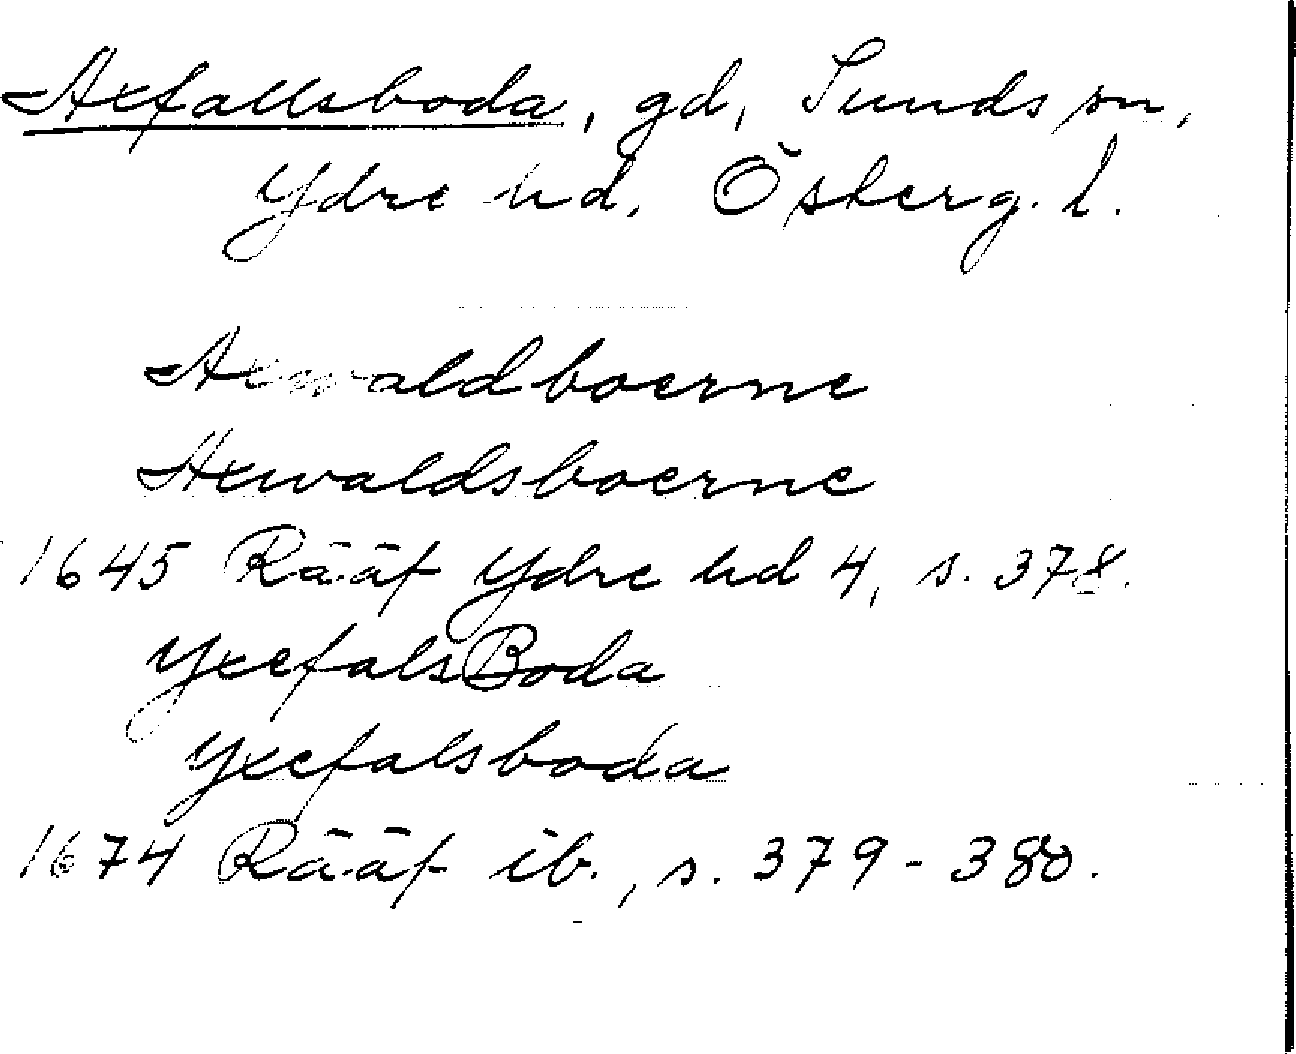 Axfallsboda, gd, Sunds sn,
Ydre hd, Österg. l.
Axwaldboerne
Axwaldsboerne
1645 Rääf Ydre hd 4, s. 378.
YxefalsBoda
Yxefalsboda
1674 Rääf ib., s. 379-380.